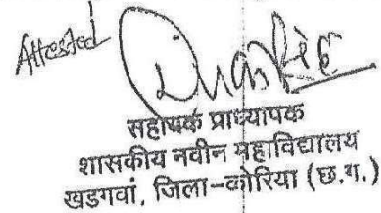 Attested
सहायक प्राध्यापक
शासकीय नवीन महाविद्यालय
खडगवां, जिला-कोरिया (छ.ग.)